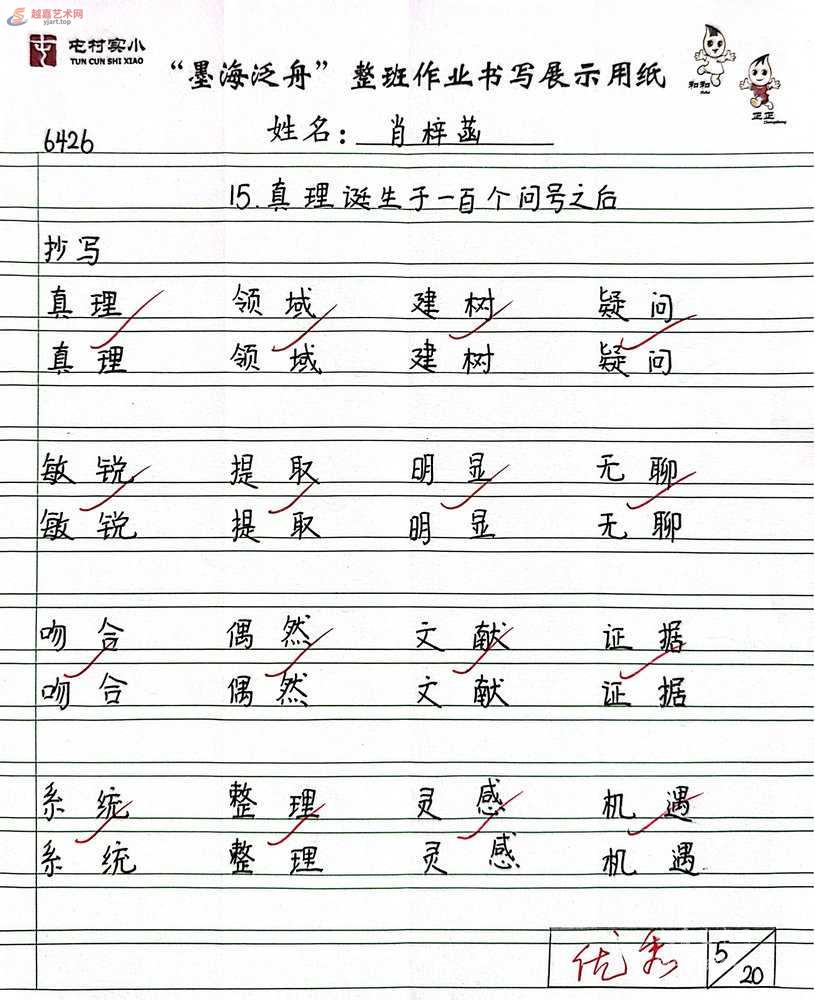 越嘉艺术网
yjart.top
屯村实小
TUN CUN SHI XIAO
“墨海泛舟”整班作业书写展示用纸
和和
正正
6426
姓名：肖梓菡
15.真理诞生于一百个问号之后
抄写
真理 领域 建树 疑问
真理 领域 建树 疑问
敏锐 提取 明显 无聊
敏锐 提取 明显 无聊
吻合 偶然 文献 证据
吻合 偶然 文献 证据
系统 整理 灵感 机遇
系统 整理 灵感 机遇
优秀 5/20